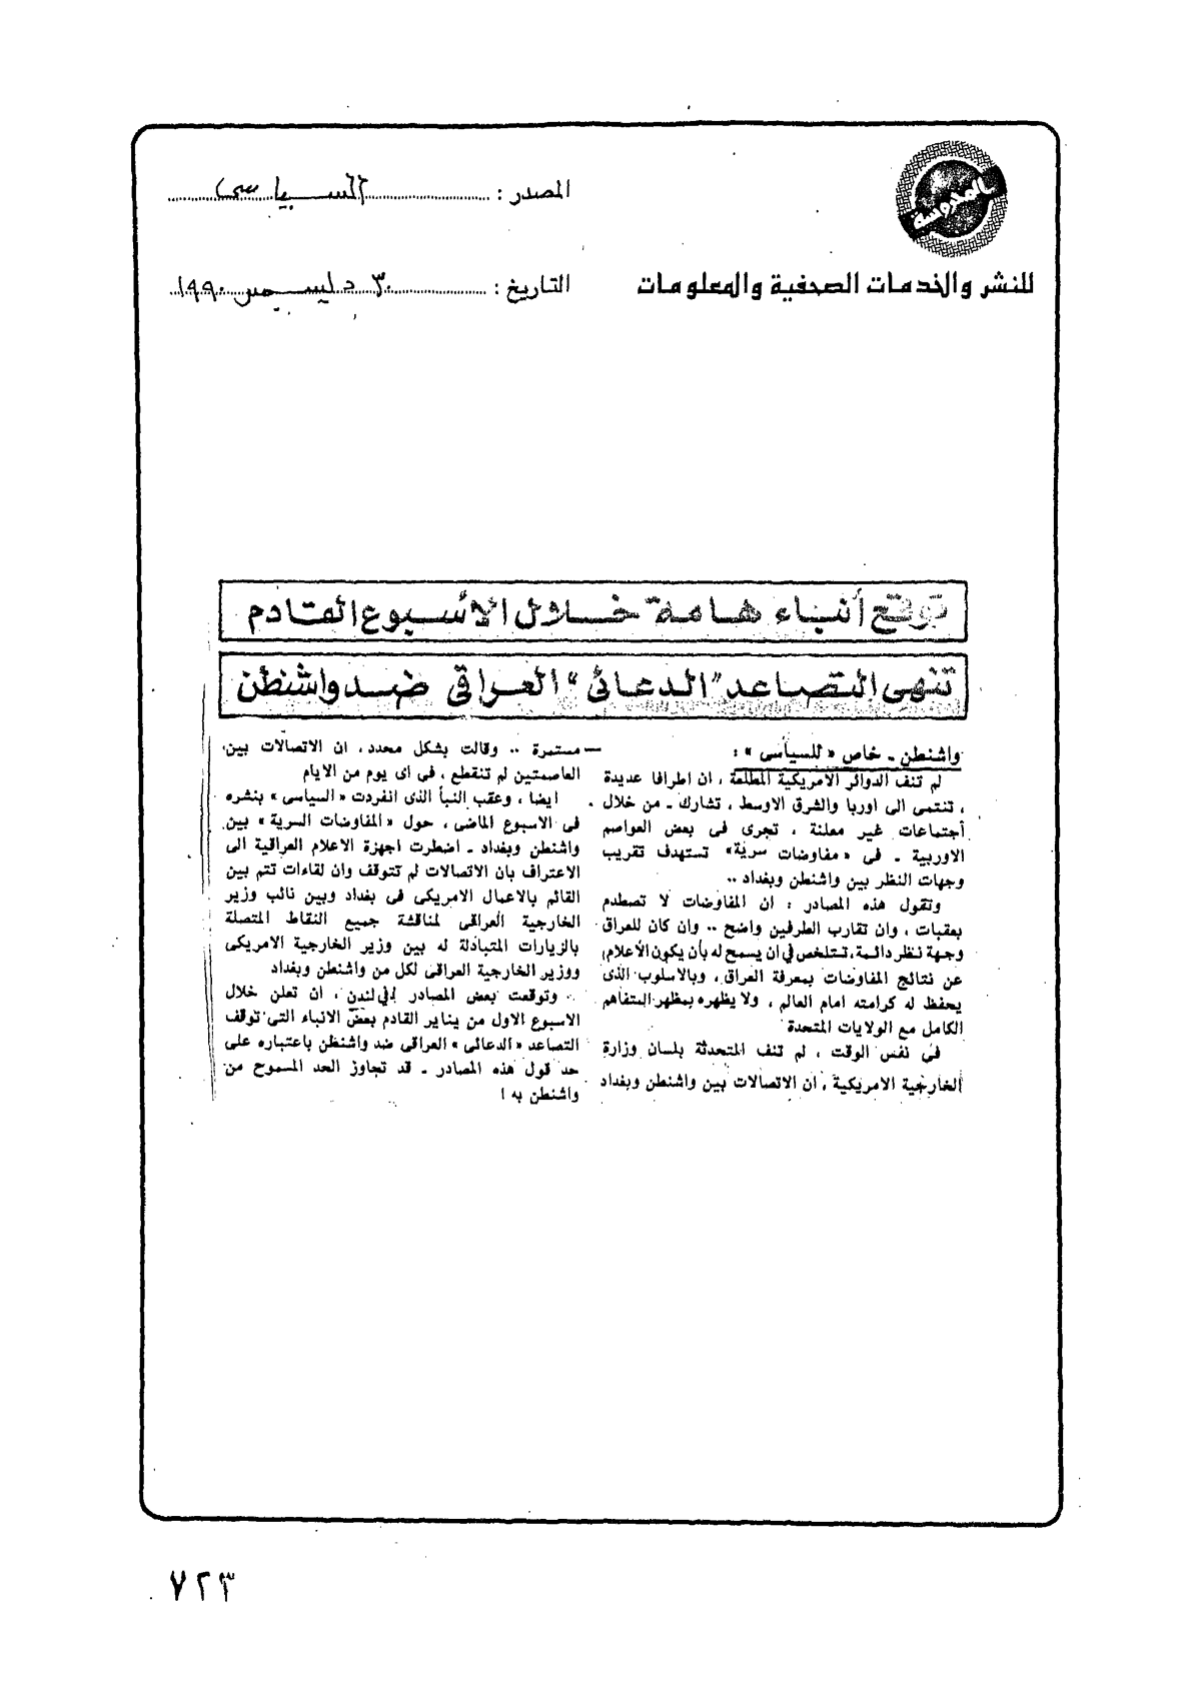 المحروسة
للنشر والخدمات الصحفية والمعلومات
المصدر : السياسى
التاريخ : ٣٠ ديسمبر ١٩٩٠
توقع أنباء هامة خلال الأسبوع القادم
تنهى التصاعد "الدعائى" العراقى ضد واشنطن
واشنطن ـ خاص «للسياسى» :
لم تنف الدوائر الأمريكية المطلعة ، ان اطرافا عديدة
، تنتمى الى اوربا والشرق الاوسط ، تشارك ـ من خلال
أجتماعات غير معلنة ، تجرى فى بعض العواصم
الاوربية ـ فى «مفاوضات سرية» تستهدف تقريب
وجهات النظر بين واشنطن وبغداد ..
وتقول هذه المصادر : ان المفاوضات لا تصطدم
بعقبات ، وان تقارب الطرفين واضح .. وان كان للعراق
وجهة نظر دائمة، تتلخص في ان يسمح له بأن يكون الأعلام
عن نتائج المفاوضات بمعرفة العراق ، وبالاسلوب الذى
يحفظ له كرامته امام العالم ، ولا يظهره بمظهر المتفاهم
الكامل مع الولايات المتحدة
فى نفس الوقت ، لم تنف المتحدثة بلسان وزارة
الخارجية الامريكية ، ان الاتصالات بين واشنطن وبغداد
ـ مستمرة .. وقالت بشكل محدد ، ان الاتصالات بين
العاصمتين لم تنقطع ، فى اى يوم من الايام
ايضا ، وعقب النبأ الذى انفردت «السياسى» بنشره
فى الاسبوع الماضى ، حول «المفاوضات السرية» بين
واشنطن وبغداد ـ اضطرت اجهزة الاعلام العراقية الى
الاعتراف بان الاتصالات لم تتوقف وان لقاءات تتم بين
القائم بالاعمال الامريكى فى بغداد وبين نائب وزير
الخارجية العراقى لمناقشة جميع النقاط المتصلة
بالزيارات المتبادلة له بين وزير الخارجية الامريكى
ووزير الخارجية العراقى لكل من واشنطن وبغداد
.. وتوقعت بعض المصادر في لندن ، ان تعلن خلال
الاسبوع الاول من يناير القادم بعض الانباء التى توقف
التصاعد «الدعائى» العراقى ضد واشنطن باعتباره على
حد قول هذه المصادر ـ قد تجاوز الحد المسموح من
واشنطن به !
٧٢٣